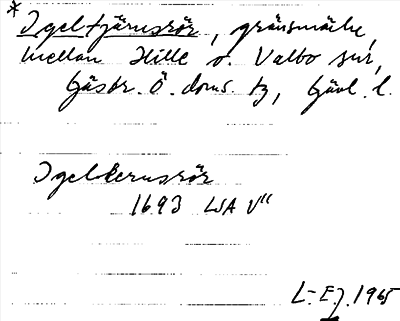 * Igeltjärnsrör, gränsmärke,
mellan Hille o. Valbo snr,
Gästr. Ö. doms. tg, Gävl. l.
Igelkernsrör
1693 LSA V11
L-EJ. 1965